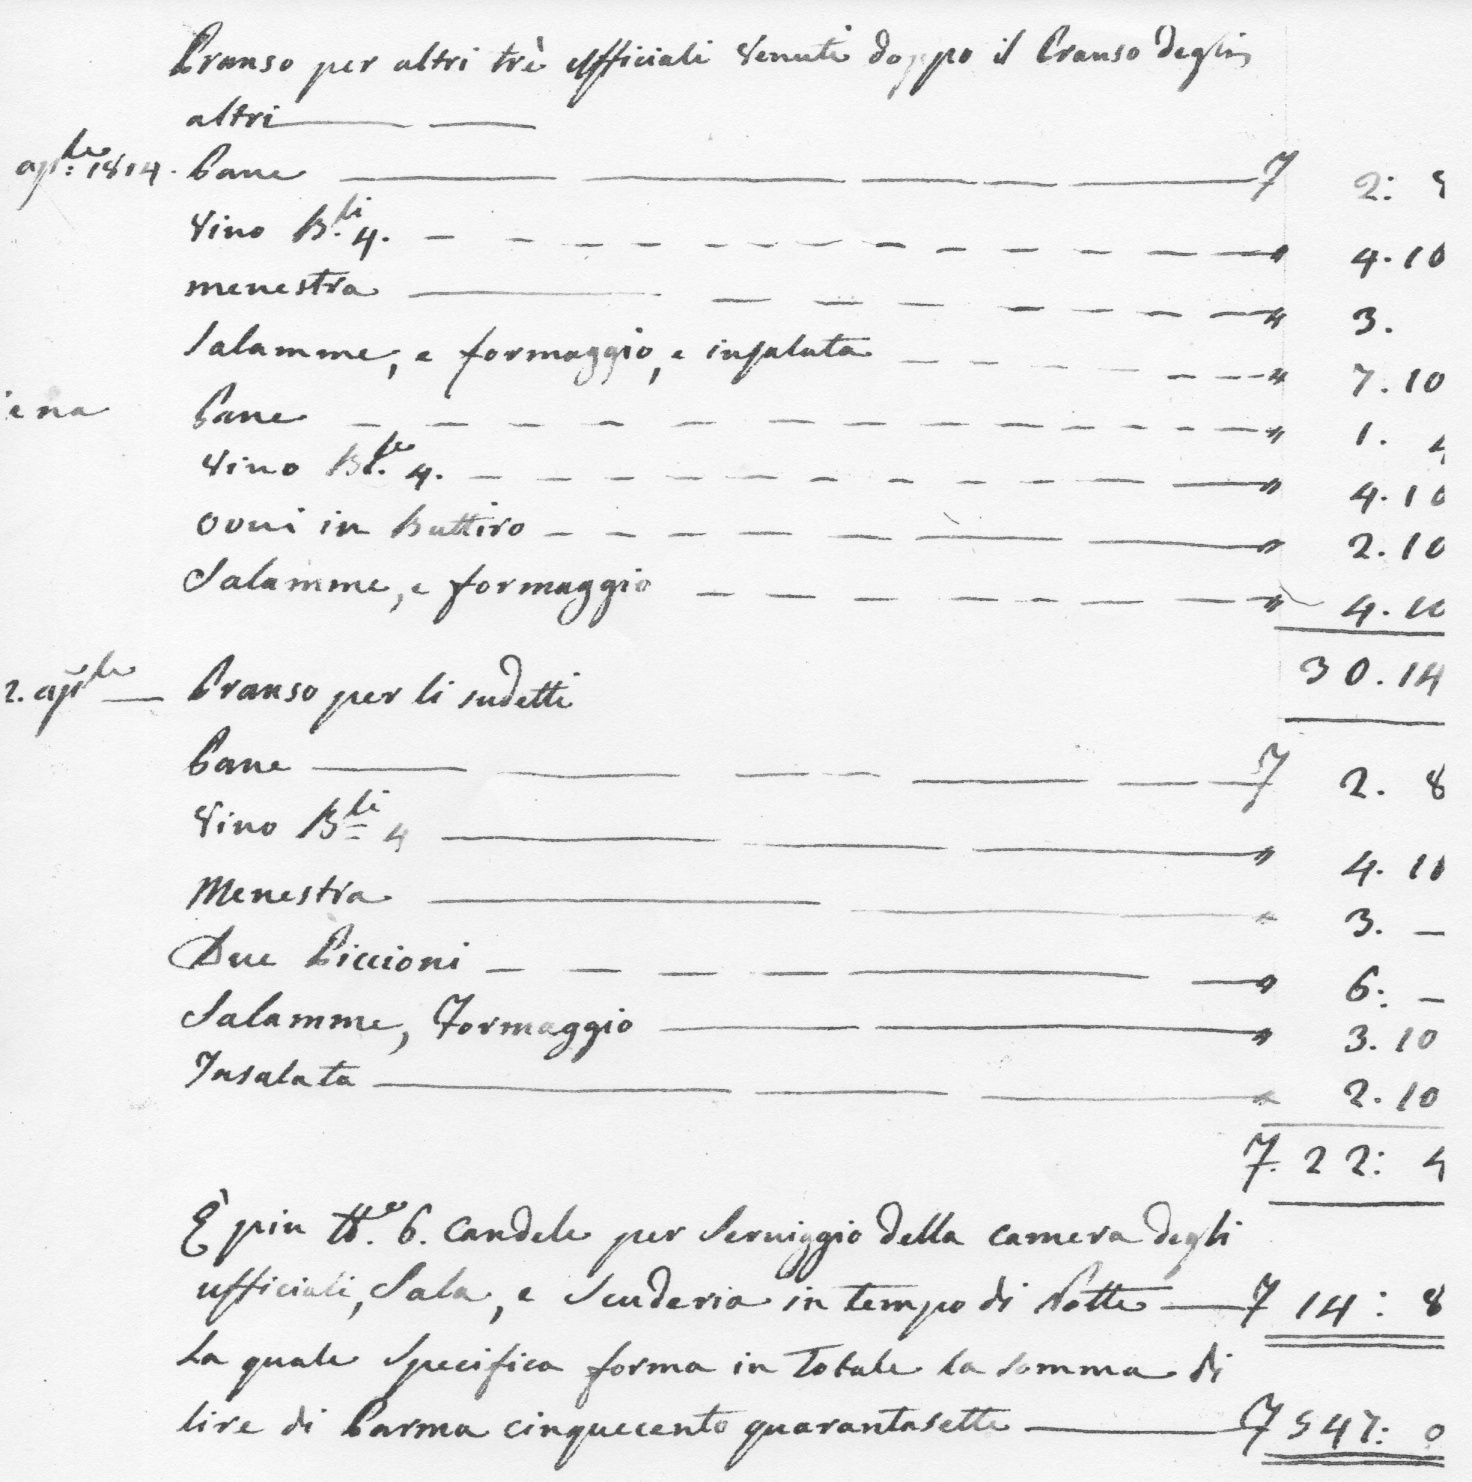 Pranso per altri trè ufficiali venuti doppo il Pranso degli
altri
aple: 1814. Pane 7 2: 5
Vino B.li 4. " 4. 10
menestra " 3.
Salamme, e formaggio, e insalata " 7. 10
ena Pane " 1. 4
Vino B.le 4. " 4. 10
ovui in Buttiro " 2. 10
Salamme, e formaggio " 4. 10
30. 14
2. aple Pranso per li sudetti
Pane 7 2. 8
Vino B.li 4 " 4. 10
Menestra " 3. –
Due Piccioni " 6: –
Salamme, Formaggio " 3. 10
Insalata " 2. 10
7. 22: 4
E piu tt.e 6. Candele per Serviggio della camera degli
ufficiali, Sala, e Scuderia in tempo di Notte 7 14: 8
La quale Specifica forma in Totale la Somma di
lire di Parma cinquecento quarantasette 7 547: 0